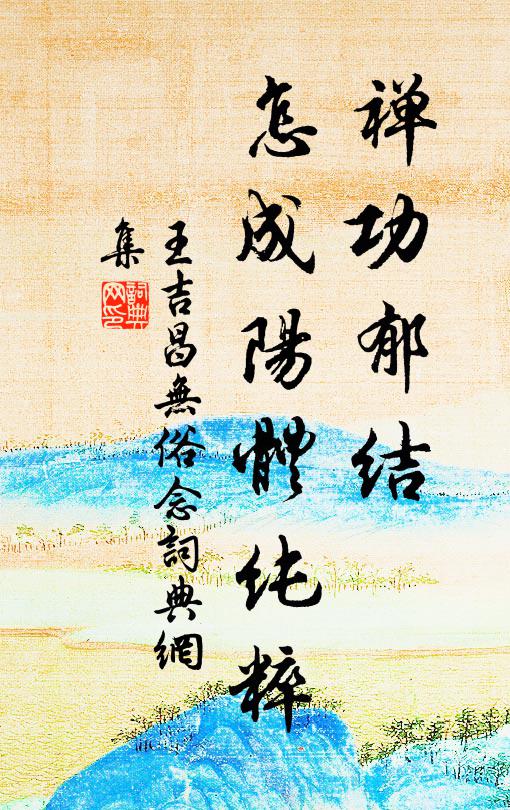 禅功郁结
怎成陽體纯粹
王吉昌無俗念詞典網
集
詞典
网印